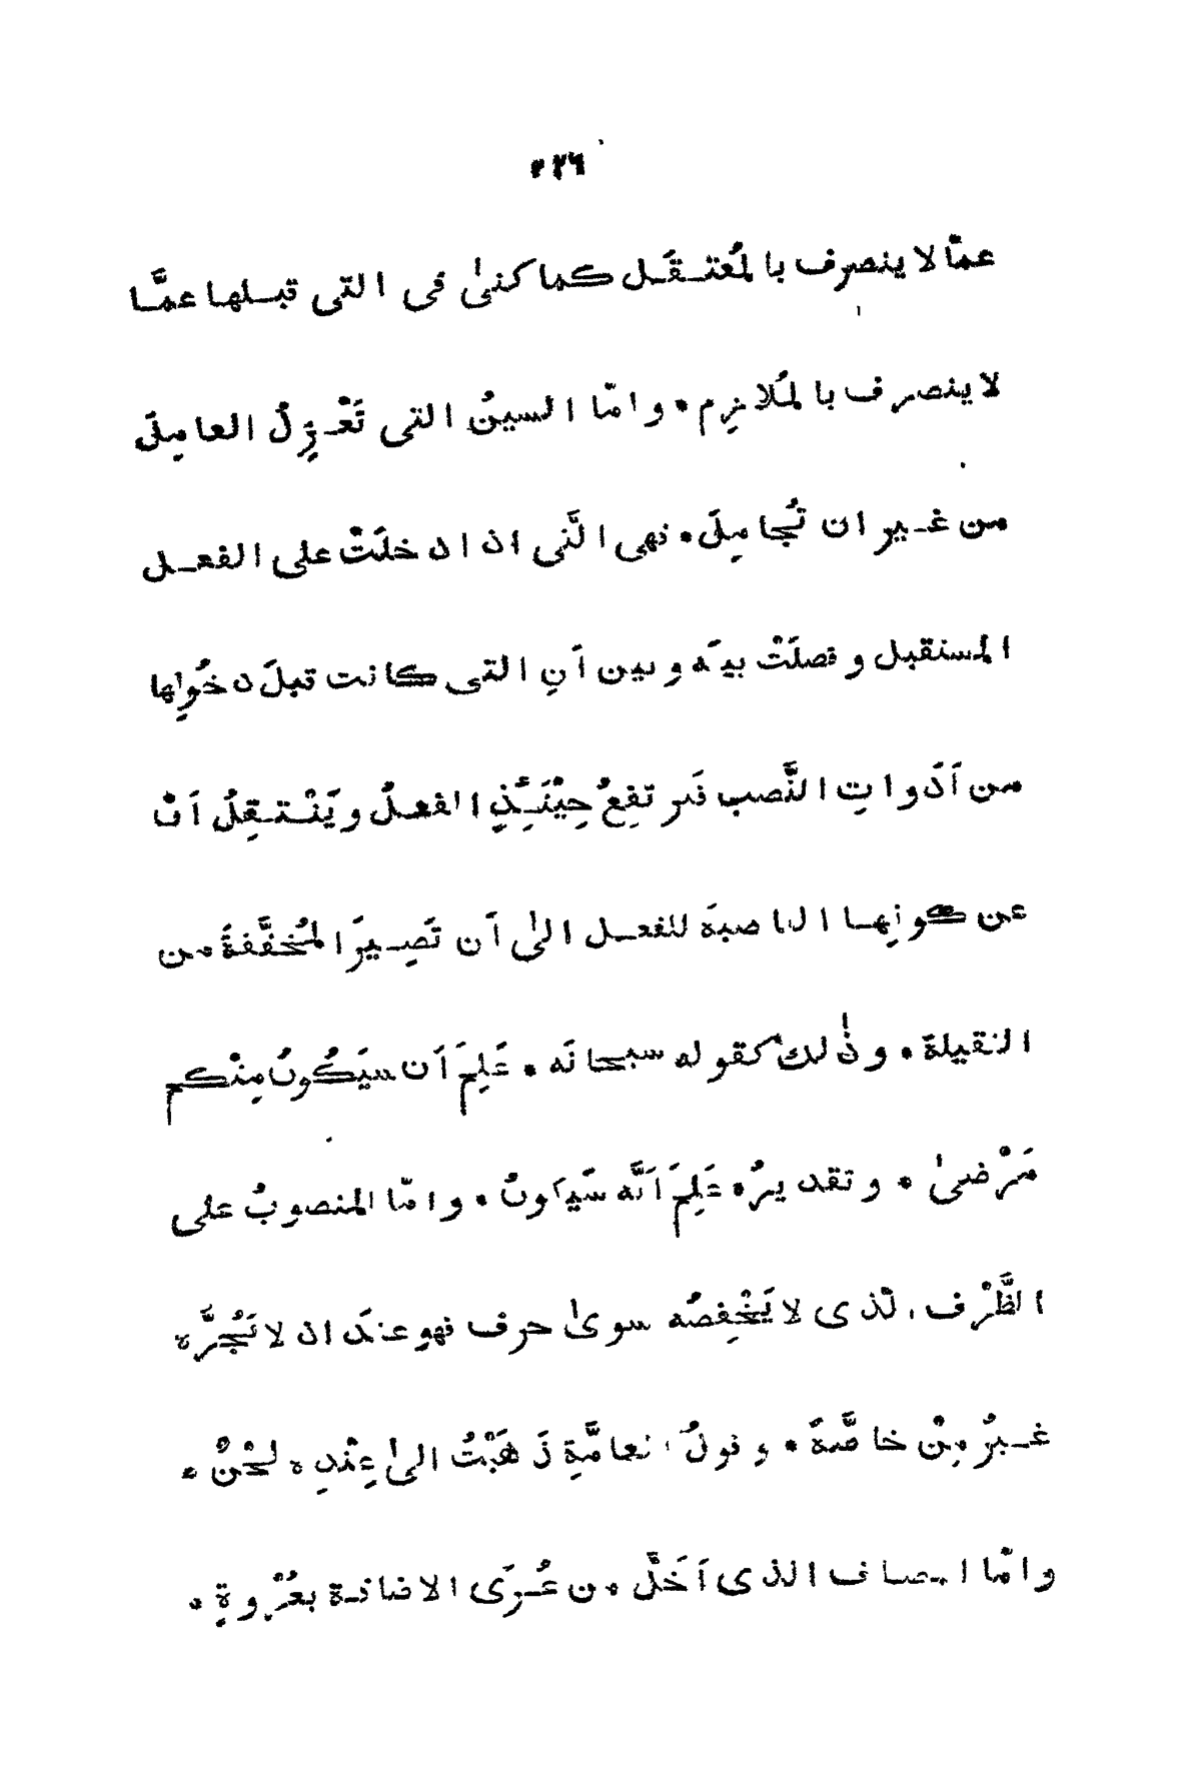 ٢٢٦
عمّا لا ينصرف بالمُعتقَل كما كنىٰ فى التى قبلها عمَّا
لا ينصرف بالمُلازِم • وامّا السينُ التى تَعْزِلُ العامِلَ
من غير ان تُجامِلَ • فهى الَّتى اذا دخلَتْ على الفعل
المستقبل وفصلَتْ بينَه وبين اَنِ التى كانت قبلَ دخُولِها
من اَدَواتِ النَّصب فَيرتفِعُ حِيْنَئِذٍ الفعلُ ويَنْتقِلُ اَنْ
عن كونِها الناصبةَ للفعل الىٰ اَن تَصِيرَ المُخفَّفةَ من
الثقيلة • وذٰلك كقوله سبحانَه • عَلِمَ اَن سيَكُونُ مِنْكم
مَرْضىٰ • وتقديرُه عَلِمَ اَنَّه سَيَكونُ • وامّا المنصوبُ على
الظَّرْف الّذى لا يَخْفِضُه سوىٰ حرف فهو عندَ اذ لا تَجُرُّه
غيرُ مِنْ خاصَّةً • وقولُ العامَّةِ ذَهَبْتُ الىٰ عِنْدِه لحْنٌ •
وامّا المضاف الذى اَخَلَّ من عُرَى الاضافة بعُرْوةٍ •